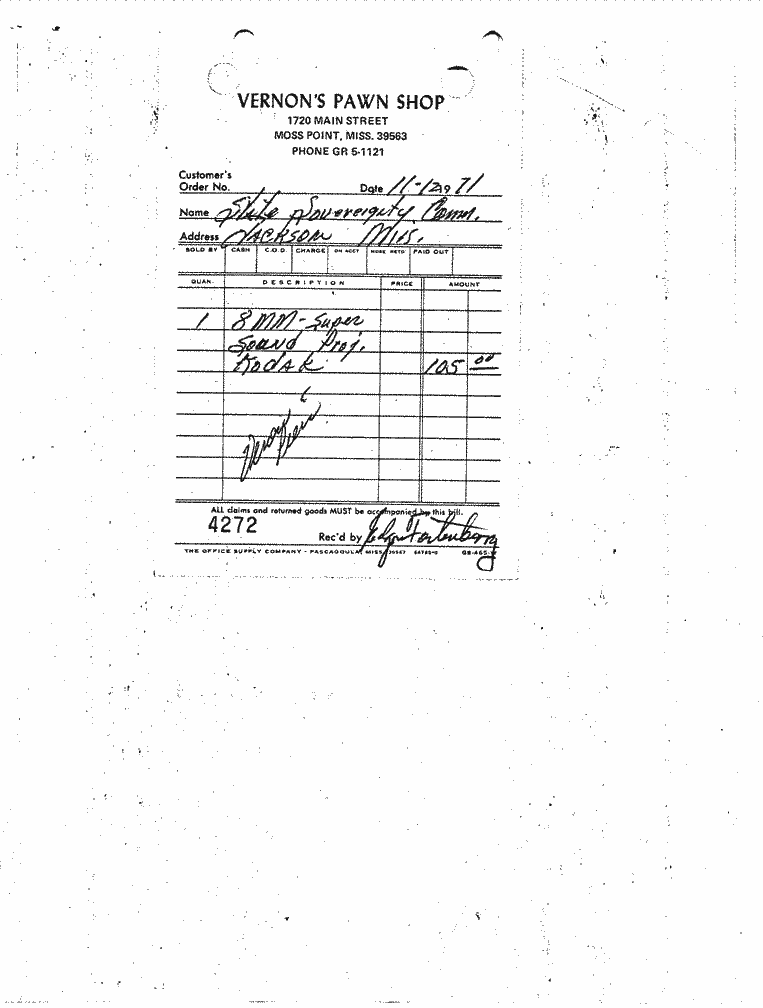 VERNON'S PAWN SHOP
1720 MAIN STREET
MOSS POINT, MISS. 39563
PHONE GR 5-1121
Customer's
Order No. Date 11-12 1971
Name State Sovereignty Comm.
Address JACKSON Miss.
SOLD BY CASH C.O.D. CHARGE ON ACCT MDSE RETD PAID OUT
QUAN. DESCRIPTION PRICE AMOUNT
1 8MM-Super
Sound Proj.
Kodak 105 00
ALL claims and returned goods MUST be accompanied by this bill.
4272
Rec'd by Edgar Fortenberry
THE OFFICE SUPPLY COMPANY - PASCAGOULA, MISS. 39567